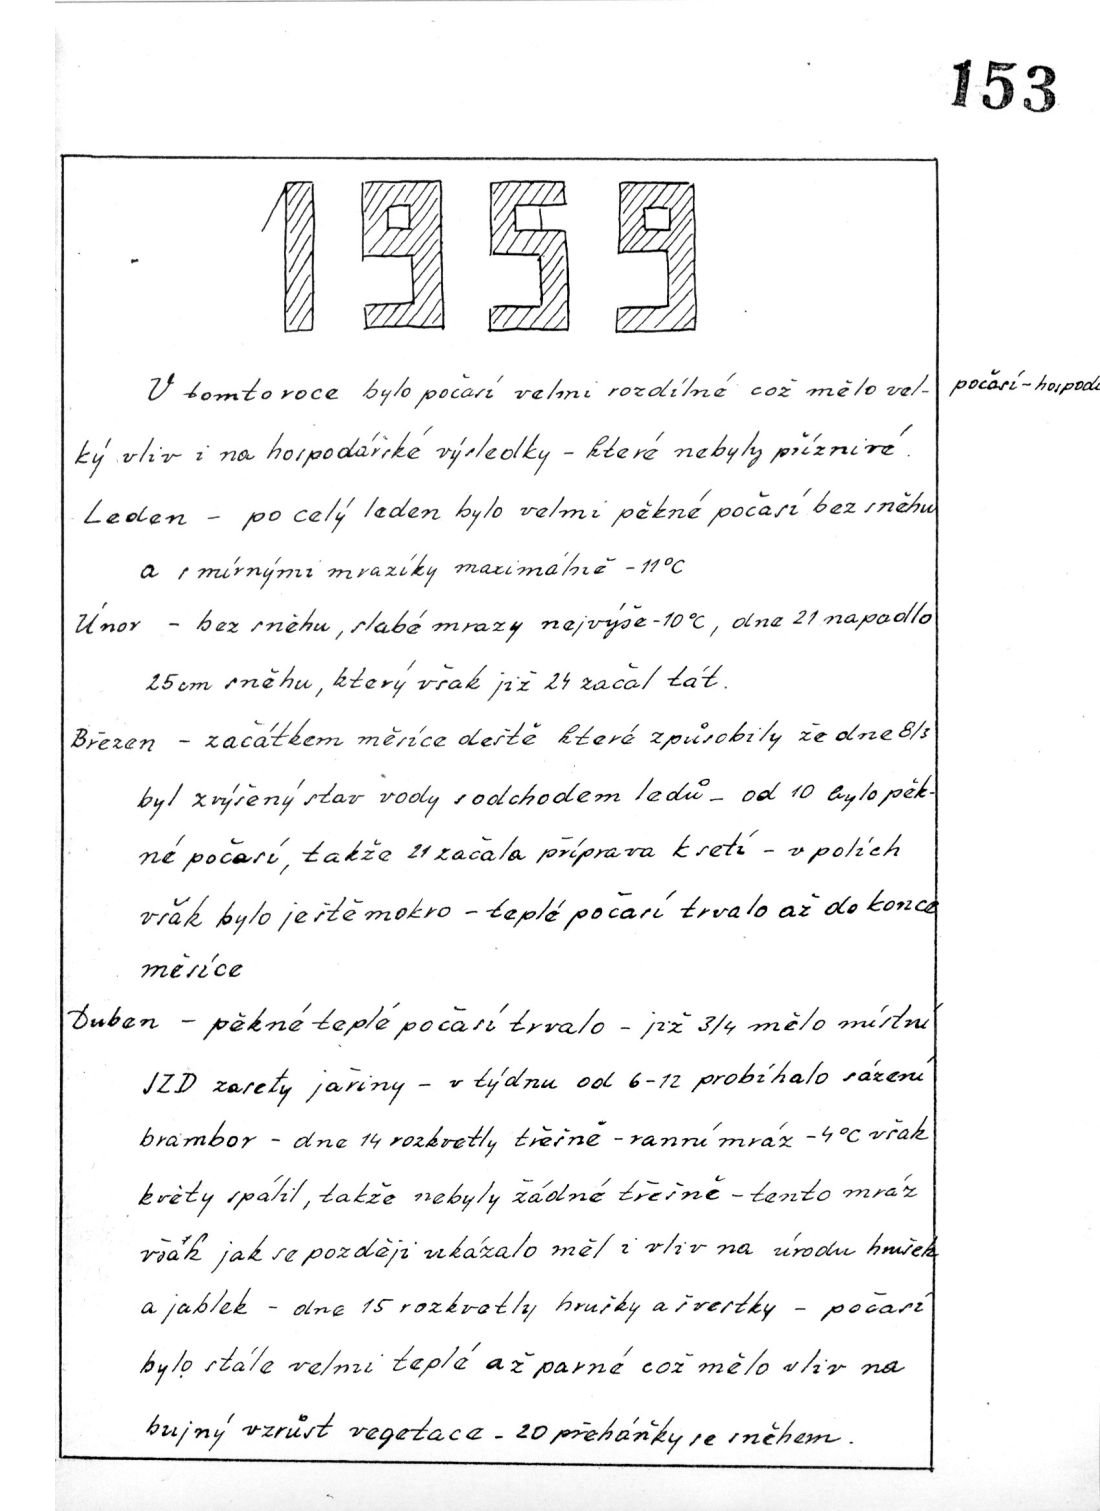 153
1959
V tomto roce bylo počasí velmi rozdílné což mělo vel- počasí-hospod
ký vliv i na hospodářské výsledky - které nebyly příznivé.
Leden - po celý leden bylo velmi pěkné počasí bez sněhu
a s mírnými mrazíky maximálně -11°C
Únor - bez sněhu, slabé mrazy nejvýše -10°C, dne 21 napadlo
25cm sněhu, který však již 24 začal tát.
Březen - začátkem měsíce deště které způsobily že dne 8/3
byl zvýšený stav vody s odchodem ledů - od 10 bylo pěk-
né počasí, takže 21 začala příprava k setí - v polích
však bylo ještě mokro - teplé počasí trvalo až do konce
měsíce
Duben - pěkné teplé počasí trvalo - již 3/4 mělo místní
JZD zasety jařiny - v týdnu od 6-12 probíhalo sázení
brambor - dne 14 rozkvetly třešně - ranní mráz -4°C však
květy spálil, takže nebyly žádné třešně - tento mráz
však jak se později ukázalo měl i vliv na úrodu hrušek
a jablek - dne 15 rozkvetly hrušky a švestky - počasí
bylo stále velmi teplé až parné což mělo vliv na
bujný vzrůst vegetace - 20 přeháňky se sněhem.